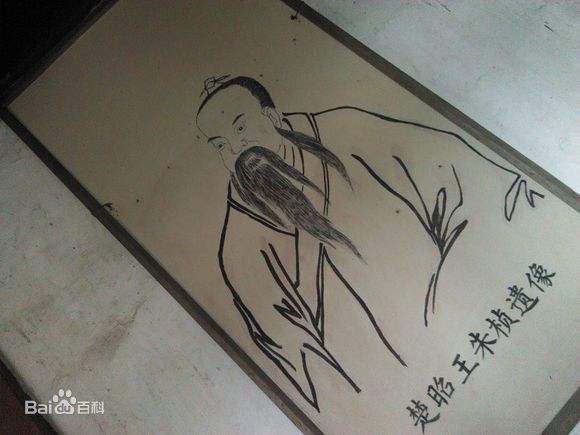 楚昭王朱桢遗像
Bai du 百科